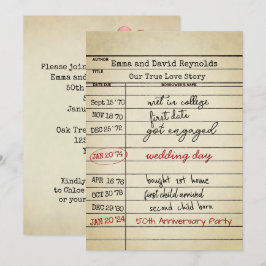 Please join
Emma and
50th
Janu
Oak Tre
123
Kindly
to Chloe
or your
AUTHOR
Emma and David Reynolds
TITLE
Our True Love Story
BORROWER'S NAME
Sept 15 '70 met in college
first date
DEC 25 '72 got engaged
JAN 20 '74 wedding day
APR 16 '76 bought 1st home
OCT 30 '78 first child arrived
DEC 29 '80 second child born
JAN 20 '24 50th Anniversary Party